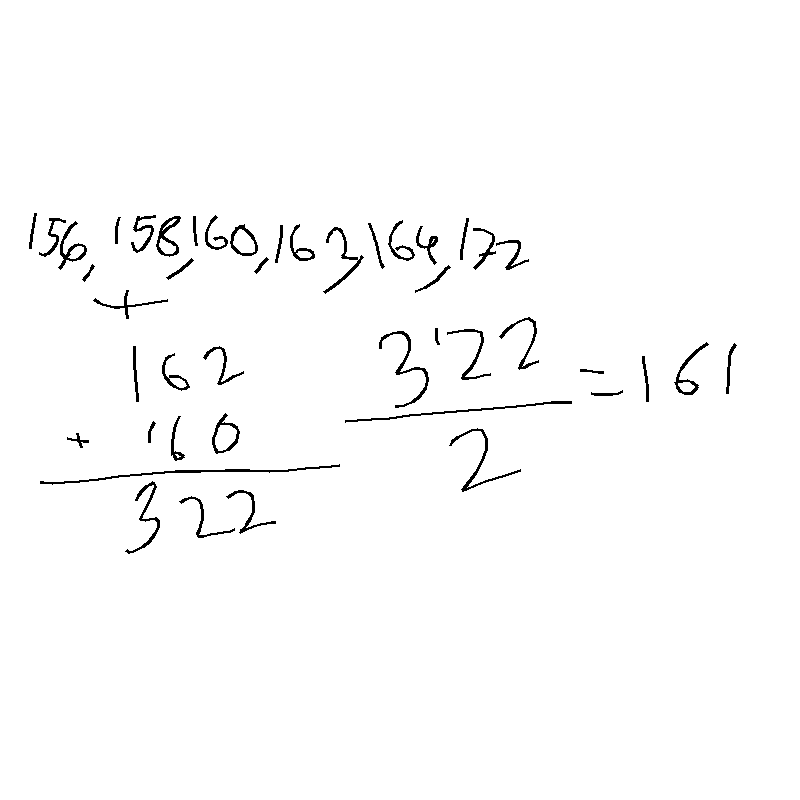 156, 158, 160, 162, 164, 172
+
162
+ 160
322
3'22
2
= 161